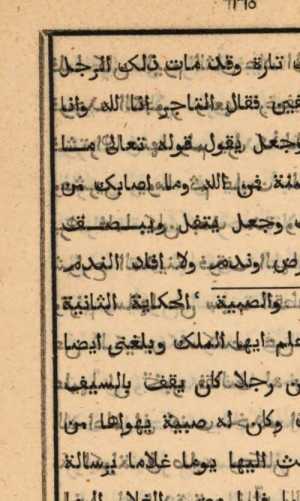 تارة وقد مات ذلك الرجل
فقال التاجر انا لله وانا
وجعل يقول قوله تعالى ما
فمن الله وما اصابك من
وجعل يتفل ويبصق
وندم ولا افاد الندم
والصبية الحكاية الثانية
ايها الملك وبلغني ايضا
رجلا كان يقف بالسيف
وكان له صبية يهواها من
اليها يوما غلاما برسالة